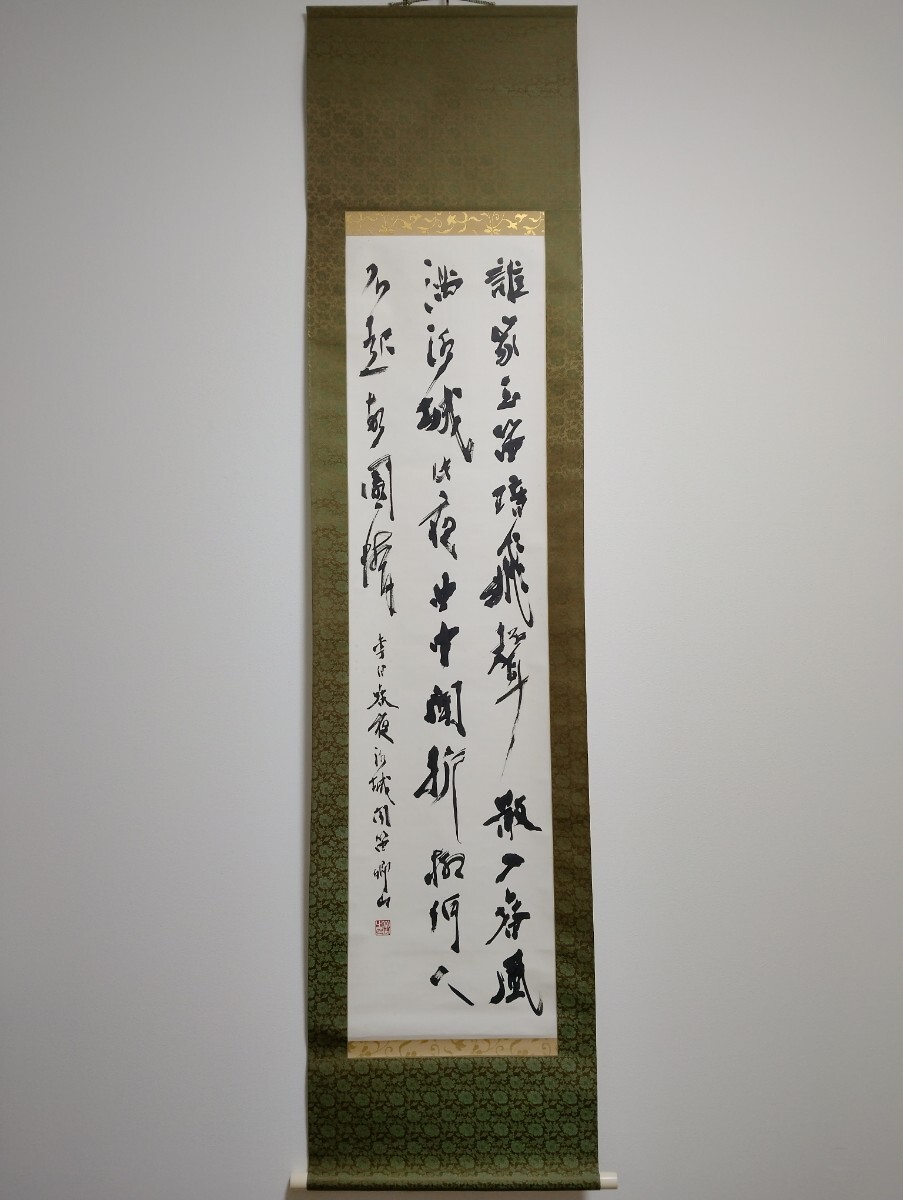 誰家玉笛暗飛聲散入春風
滿洛城此夜曲中聞折柳何人
不起故園情
李白春夜洛城聞笛 山